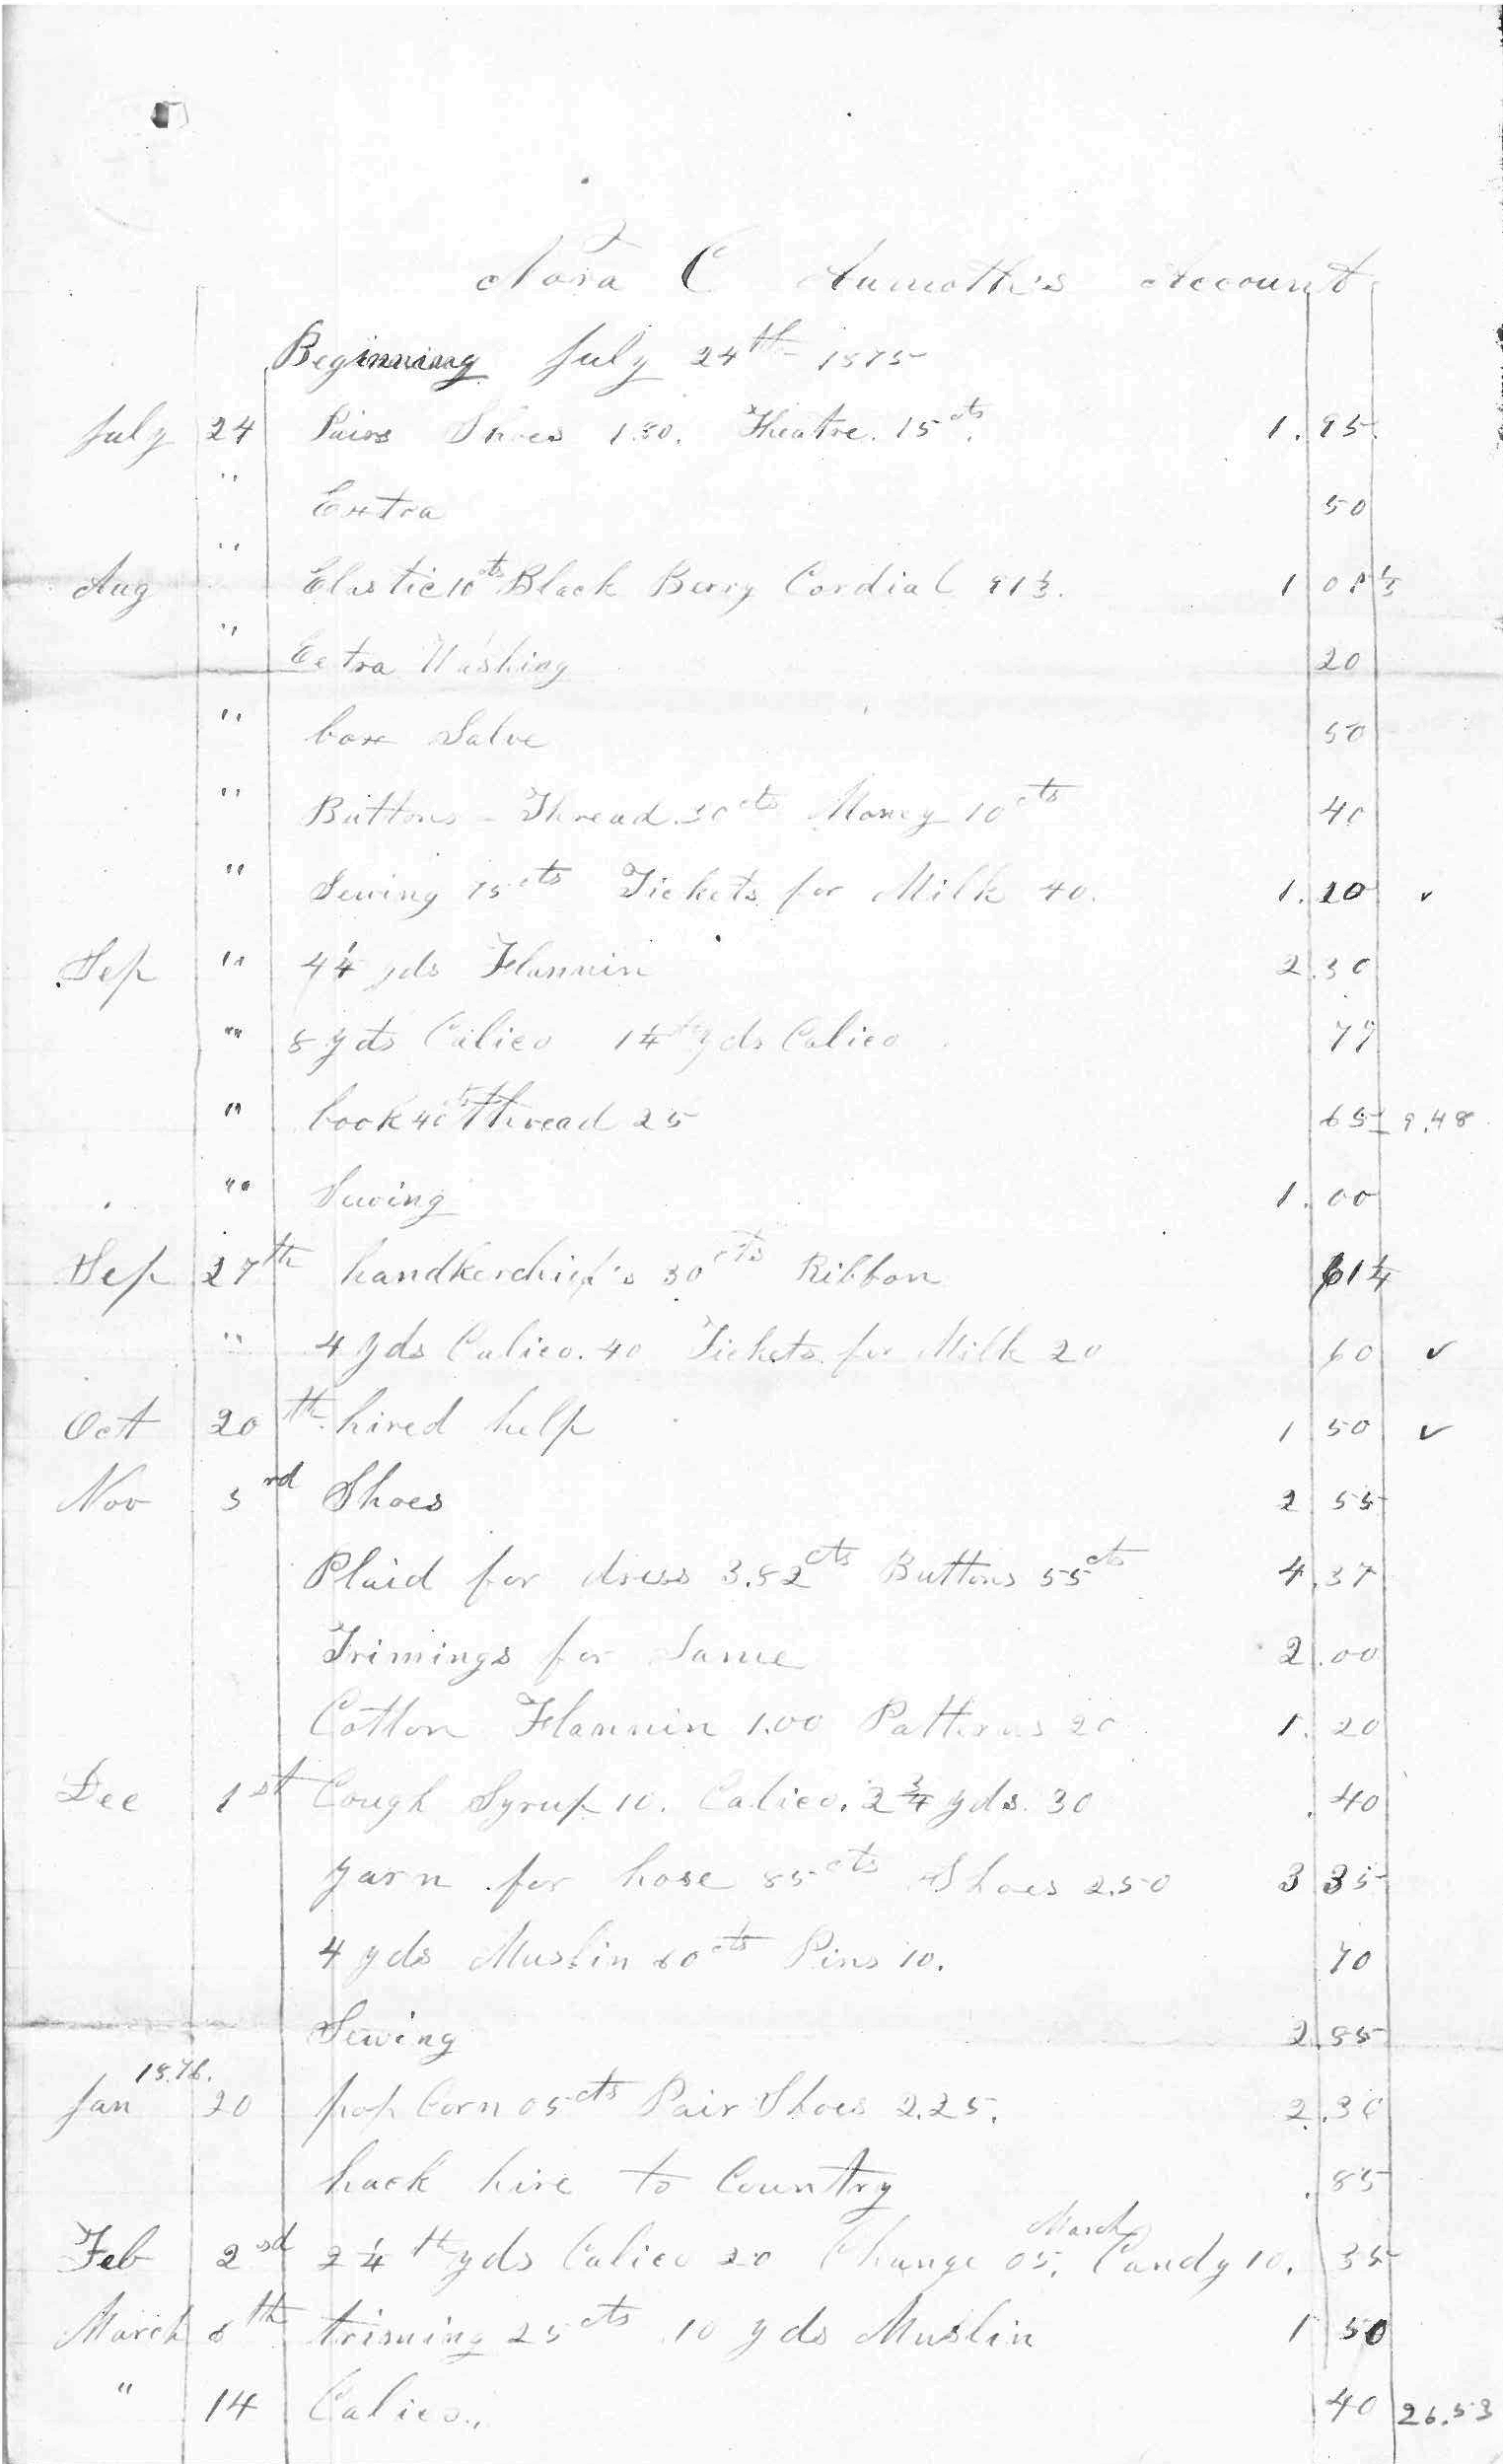 Nora C Aumoth's Account
Beginning July 24th 1875
July 24 Pairs Shoes 1.80. Theatre. 15cts. 1.95.
" Extra 50
Aug " Elastic 10cts Black Berry Cordial 91⅓. 1 01⅓
" Extra Washing 20
" box Salve 50
" Buttons - Thread. 30cts Money 10cts 40
" Sewing 75cts Tickets for Milk 40. 1.20 ✓
Sep " 4¼ yds Flannin 2.30
" 8 yds Calico 1¼ yds Calico 77
" book 40cts thread 25 65 9.48
" Sewing 1.00
Sep 27th handkerchief's 30cts Ribbon 61¼
" 4 yds Calico. 40 Tickets for Milk 20 60 ✓
Oct 20th hired help 1 50 ✓
Nov 3rd Shoes 2 55
Plaid for dress 3.82cts Buttons 55cts 4.37
Trimings for Same 2.00
Cotton Flannin 1.00 Patterns 20 1.20
Dec 1st Cough Syrup 10. Calico. 2¾ yds. 30 .40
yarn for hose 85cts Shoes 2.50 3 35
4 yds Muslin 60cts Pins 10. 70
Sewing 2.85
1876.
Jan 20 pop Corn 05cts Pair Shoes 2.25. 2.30
hack hire to Country .85
March
Feb 2nd 2¼th yds Calico 20 Change 05. Candy 10. 35
March 8th triming 25cts 10 yds Muslin 1 50
" 14 Calico.. 40 26.53